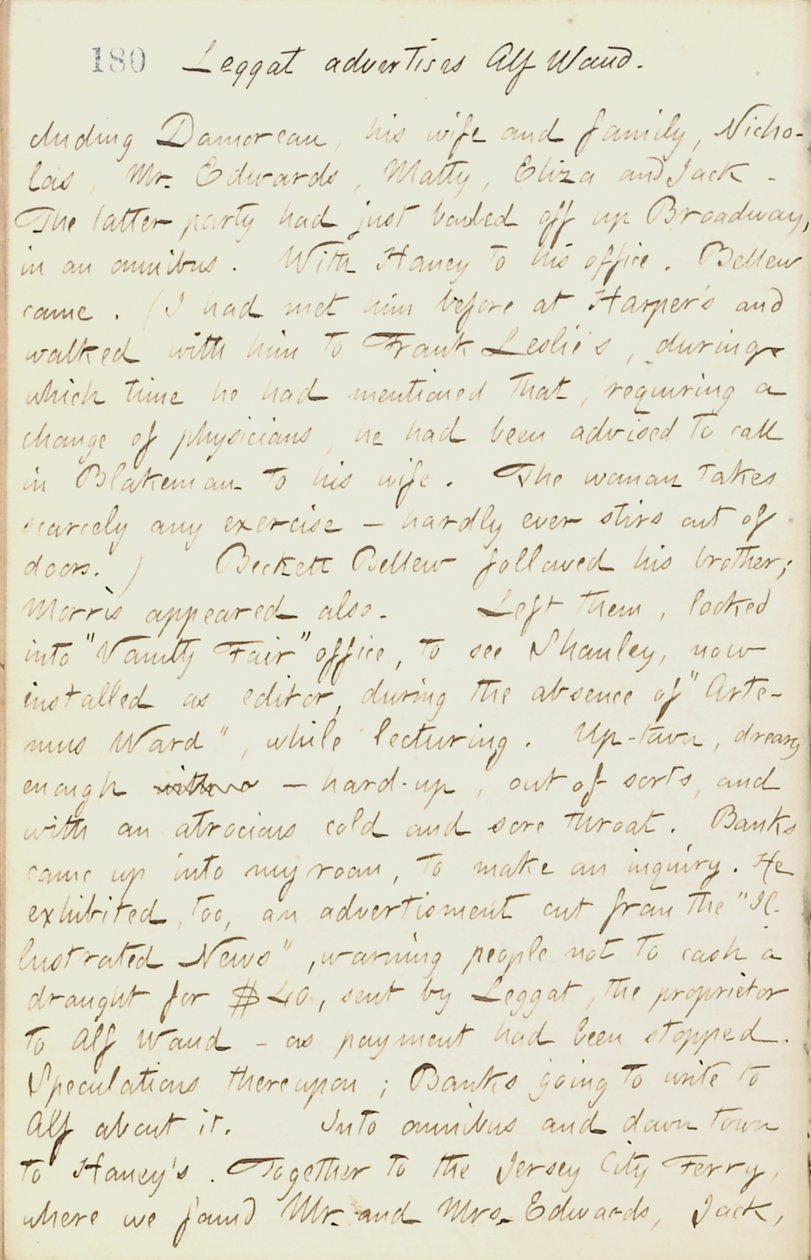 180 Leggat advertises Alf Waud.
cluding Damoreau, his wife and family, Nicho-
las, Mr. Edwards, Matty, Eliza and Jack -
The latter party had just bowled off up Broadway,
in an omnibus. With Haney to his office. Bellew
came. (I had met him before at Harper's and
walked with him to Frank Leslie's, during
which time he had mentioned that, requiring a
change of physicians, he had been advised to call
in Blakeman to his wife. The woman takes
scarcely any exercise — hardly ever stirs out of
doors.) Beckett Bellew followed his brother;
Morris appeared also. Left them, looked
into "Vanity Fair" office, to see Shanley, now
installed as editor, during the absence of "Arte-
mus Ward", while lecturing. Up-town, dreary
enough with — hard-up, out of sorts, and
with an atrocious cold and sore throat. Banks
came up into my room, to make an inquiry. He
exhibited, too, an advertisment cut from the "Il-
lustrated News", warning people not to cash a
draught for $40, sent by Leggat, the proprietor
to Alf Waud - as payment had been stopped.
Speculations thereupon; Banks going to write to
Alf about it. Into omnibus and down town
to Haney's. Together to the Jersey City Ferry,
where we found Mr. and Mrs. Edwards, Jack,